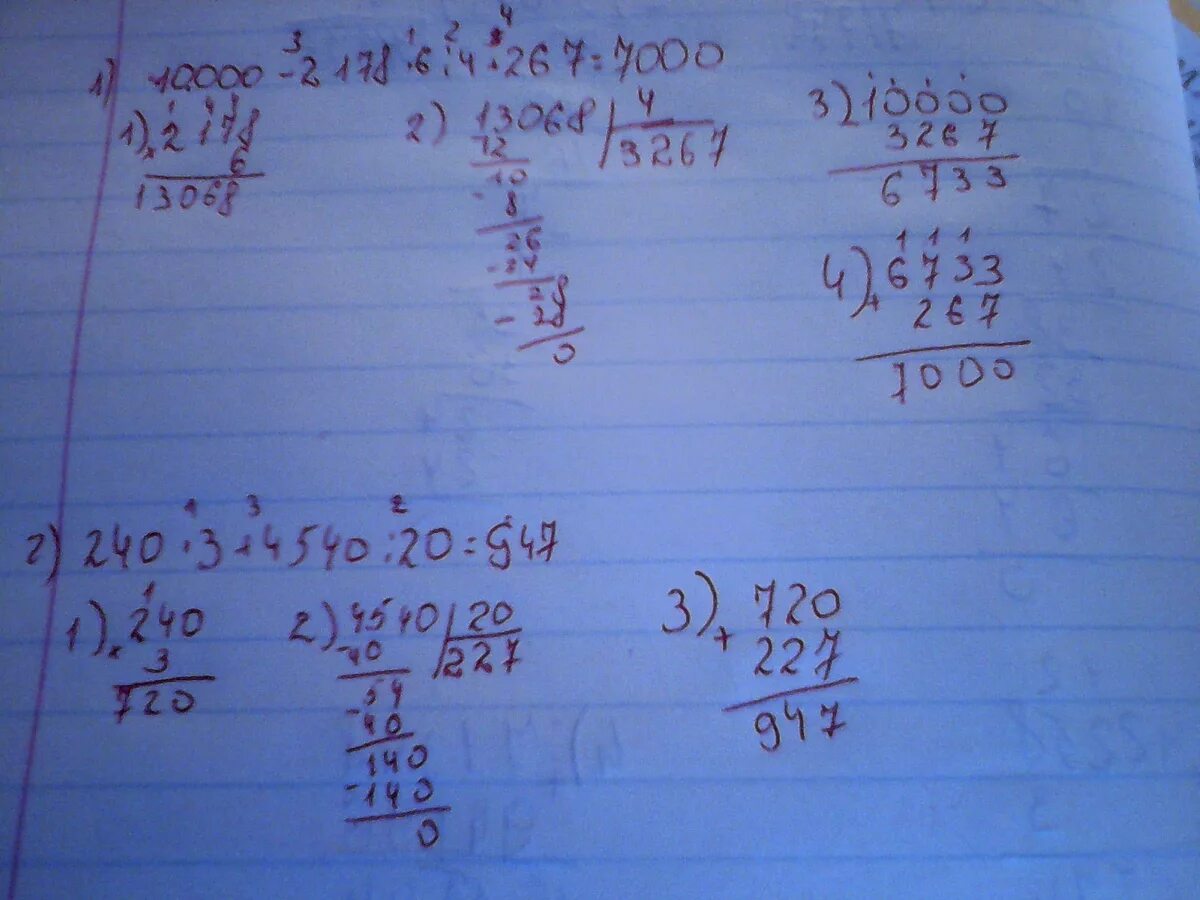 3 1 2 4
1) 10000 - 2178 · 6 : 4 + 267 = 7000
1) 2178
× 6
13068
2) 13068 | 4
12 3267
10
- 8
26
- 24
28
- 28
0
3) 10000
3267
6733
1 1 1
4) 6733
+ 267
7000
1 3 2
2) 240 · 3 + 4540 : 20 = 947
1
1) 240
× 3
720
2) 4540 | 20
- 40 227
54
- 40
140
- 140
0
3) 720
+ 227
947